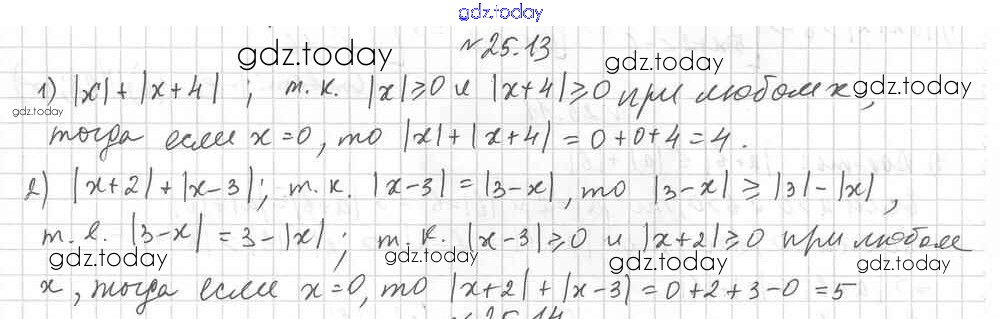 gdz.today
№25.13
gdz.today gdz.today
1) |x|+|x+4| ; т.к. |x|≥0 и |x+4|≥0 при любом x,
gdz.today gdz.today
тогда если x=0, то |x|+|x+4|=0+0+4=4.
2) |x+2|+|x-3|; т.к. |x-3|=|3-x|, то |3-x|≥|3|-|x|,
т.е. |3-x|=3-|x|; т.к. |x-3|≥0 и |x+2|≥0 при любом
gdz.today gdz.today gdz.today gdz.today
x, тогда если x=0, то |x+2|+|x-3|=0+2+3-0=5
№25.14